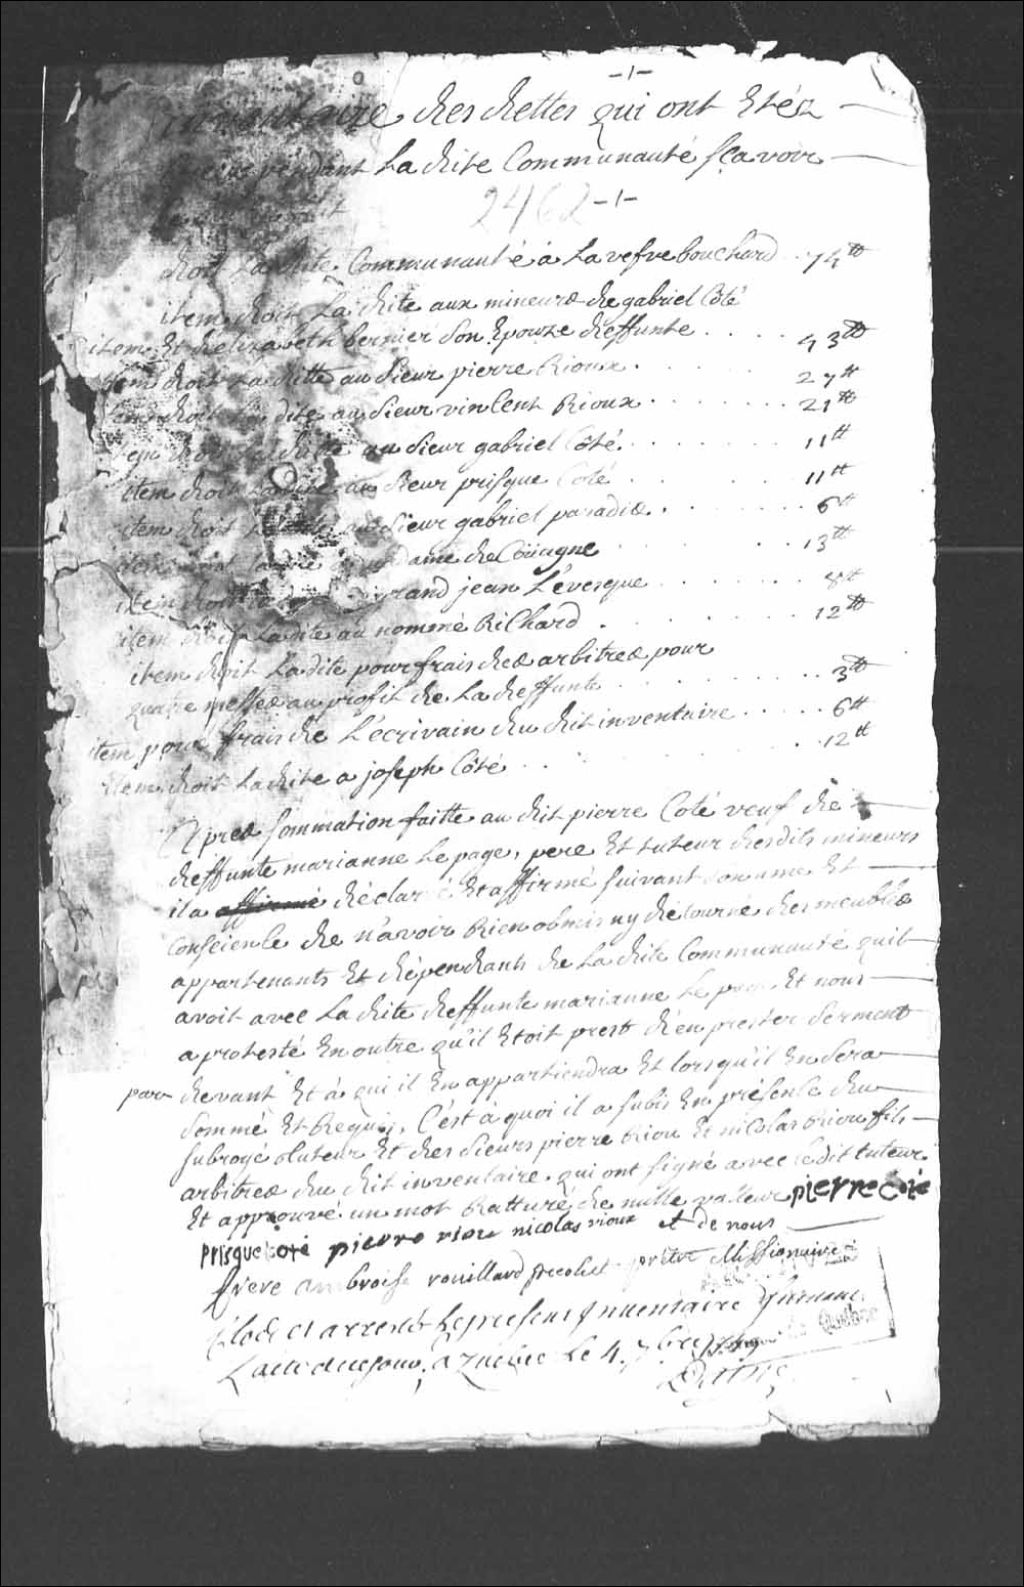 -1-
inventaire des dettes qui ont étéz
pendant La dite Communauté sçavoir
2462 -1-
doit La dite Communauté à La vefve bouchard 74tt
item doit La dite aux mineurs de gabriel Côté
item Et delizabeth bernier son Epouze deffunte . . . . 43tt
item doit La ditte au sieur pierre Rioux . 27tt
item doit La dite au sieur vincent Rioux . . . . . . . 21tt
item doit La ditte au sieur gabriel Côté . . . . . . . 11tt
item doit Ladite au sieur prisque Coté . 11tt
item doit Ladite au sieur gabriel paradis . . . . . . 6tt
item doit Ladite dame de Coüagne . . . 13tt
item doit rand jean L'évesque . . . . . . . 8tt
item doit Ladite au nommé Richard . . . . . . 12tt
item doit La dite pour frais des arbitres pour
quatre messes au profit de La deffunte . . . . . . . 3tt
item pour frais de L'écrivain du dit inventaire . . . . . 6tt
item doit La dite a joseph Côté . . . . 12tt
Apres sommation faitte au dit pierre Coté veuf de
deffunte marianne Le page, pere Et tuteur desdits mineurs
il a affirmé déclaré Et affirmé suivant son ame Et
Conscience de n'avoir Rien obmis ny détourné des meubles
appartenants Et dépendants de La dite Communauté quil
avoit avec La dite deffunte marianne Le page, Et nous
a protesté En outre qu'il Etoit prest d'en prester serment
par devant Et à qui il En appartiendra Et lorsqu'il En sera
sommé Et Requis, C'est à quoi il a subis En présence du
subrogé tuteur Et des sieurs pierre Riou Et nicolas Riou fils
arbitres du dit inventaire, qui ont signé avec le dit tuteur
Et approuvé un mot Ratturé de nulle valleur pierre coté
Prisque coté pierre riou nicolas rioux et de nous
frere ambroise rouillard Recolet prêtre Missionaire
Clos et arresté Le present Inventaire
a quebec Le 4. 7bre
Quebec